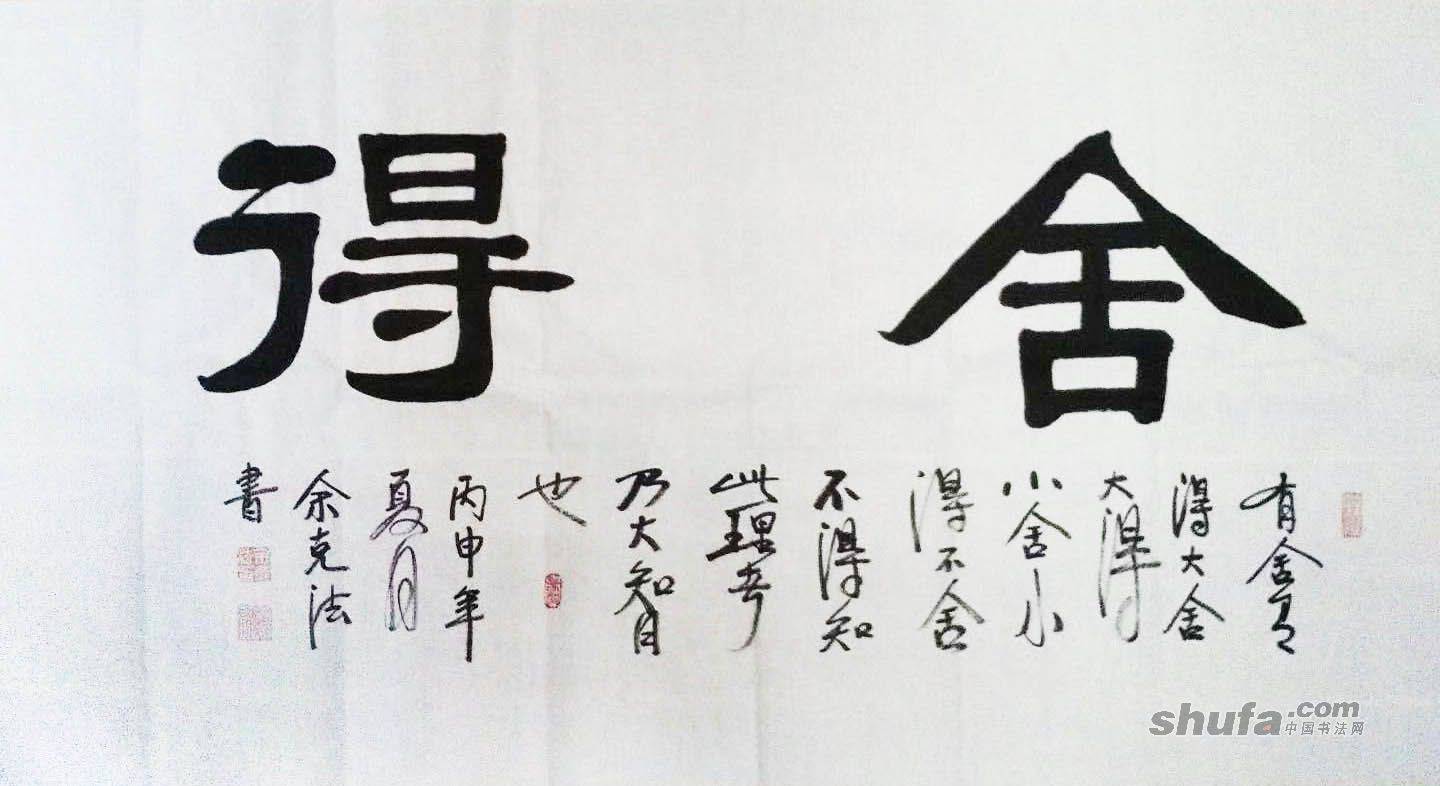 舍得
有舍有
得大舍
大得
小舍小
得不舍
不得知
此理者
乃大智
也
丙申年
夏月
余克法
書
shufa.com
中国书法网